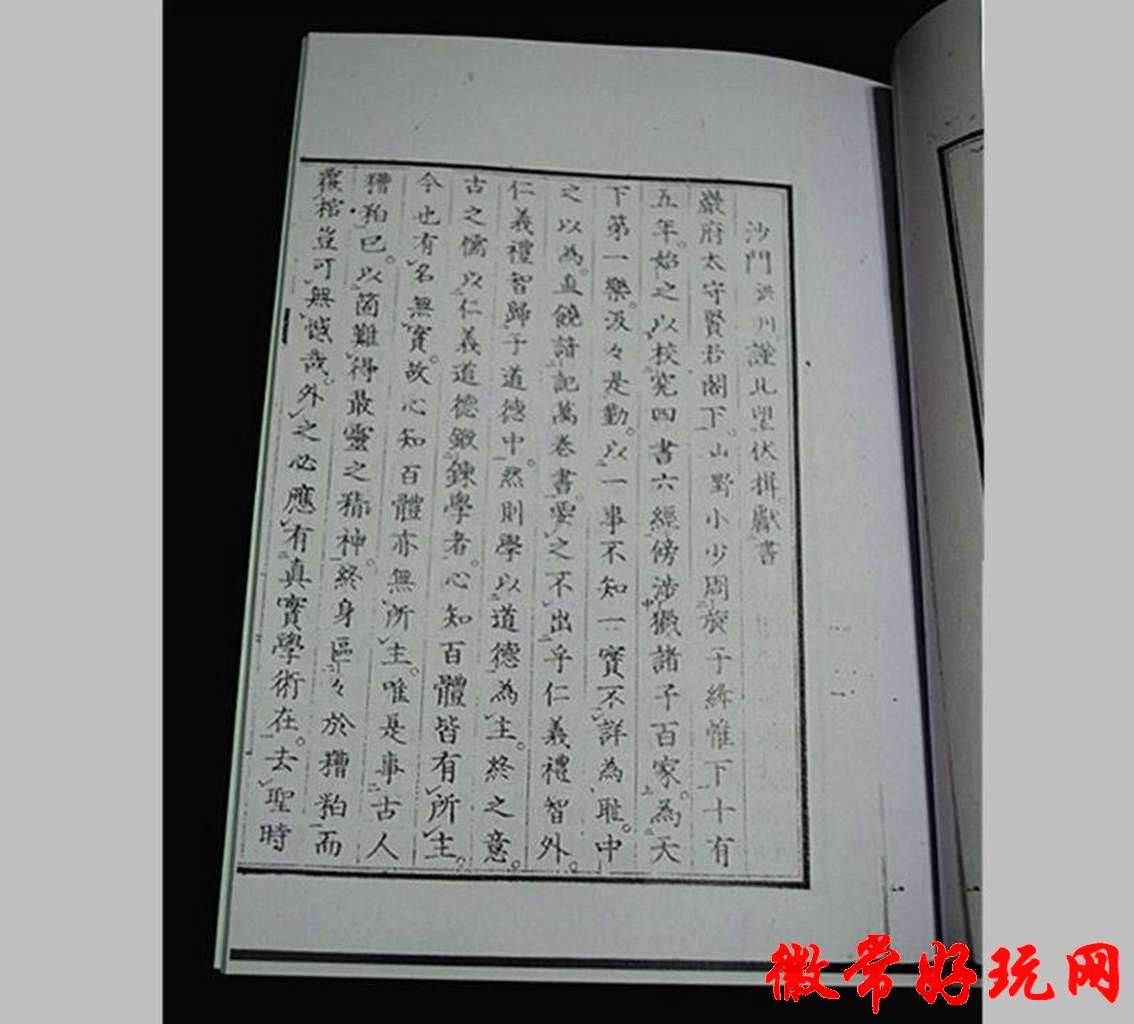 沙門洪川謹北望伏楫獻書
巖府太守賢君閣下。山野小少周旋于絳帷下十有
五年。始之以校究四書六經傍涉獵諸子百家。為天
下第一樂。汲々是勤。以一事不知一實不詳為耻。中
之以為。直饒諳記萬卷書。要之不出乎仁義禮智外。
仁義禮智歸于道德中。然則學以道德為主。終之意。
古之儒以仁義道德鍛鍊學者。心知百體皆有所主。
今也有名無實。故心知百體亦無所主。唯是事古人
糟粕已。以箇難得最靈之精神。終身區々於糟粕而
蓋棺豈可無憾哉。外之必應有真實學術在。去聖時
一
一
徽常好玩网